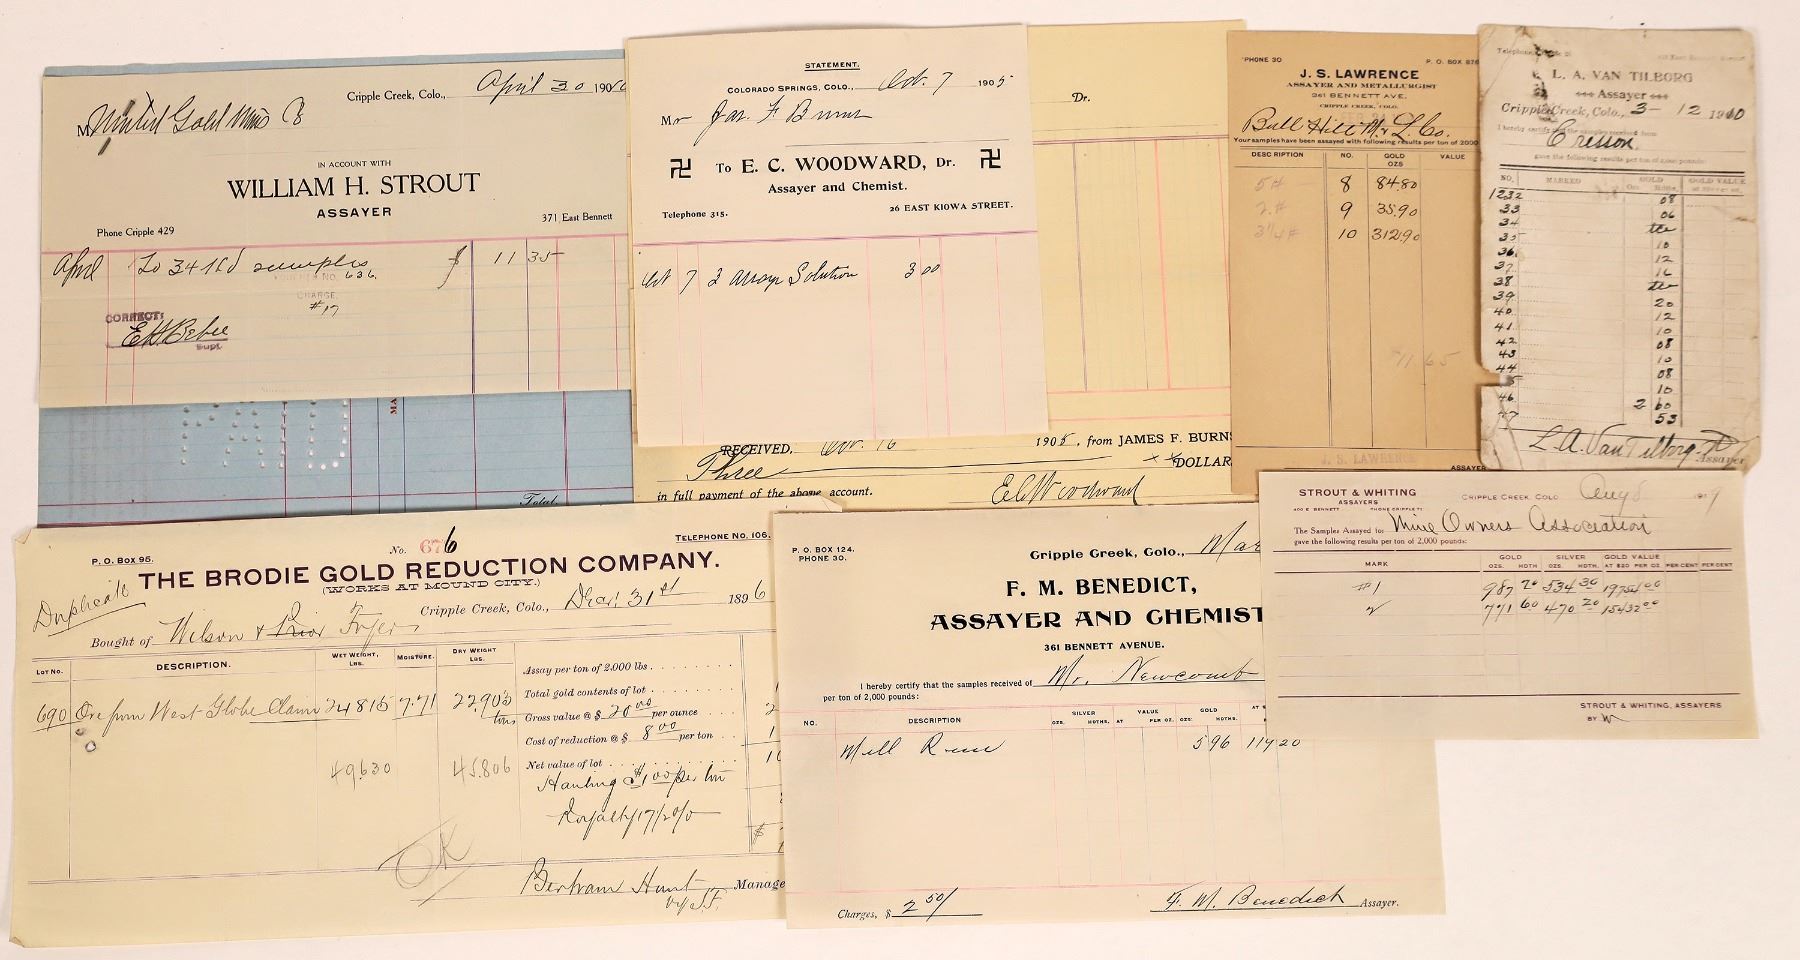 Cripple Creek, Colo., April 30 190
M United Gold Mines Co
IN ACCOUNT WITH
WILLIAM H. STROUT
ASSAYER
371 East Bennett
Phone Cripple 429
April To 34 samples $ 11 35
VOUCHER NO. 636
CHARGE
#17
CORRECT:
Supt.
MA
Total
STATEMENT.
COLORADO SPRINGS, COLO., Oct. 7 1905
Mr Jas. F Burns
卐 To E. C. WOODWARD, Dr. 卐
Assayer and Chemist.
Telephone 315. 26 EAST KIOWA STREET.
Oct 7 3 assays Solution 3 00
Dr.
RECEIVED, 16 1905, from JAMES F. BURNS
Three DOLLAR
in full payment of the above account.
E C Woodward
PHONE 30 P. O. BOX 876
J. S. LAWRENCE
ASSAYER AND METALLURGIST
361 BENNETT AVE.
CRIPPLE CREEK, COLO.
Bull Hill M & L. Co.
Your samples have been assayed with following results per ton of 2000
DESCRIPTION NO. GOLD OZS VALUE
5# 8 84.80
2# 9 35.90
10 312.90
11 65
J. S. LAWRENCE
ASSAYER
L. A. VAN TILBORG
Assayer
Cripple Creek, Colo., 3-12 1910
I hereby certify that the samples received from
Cresson
gave the following results per ton of 2,000 pounds:
NO. MARKED GOLD GOLD VALUE
Ozs. Hdths.
1232 08
33 06
34 tr
35 10
36 12
37 16
38 tr
39 20
40 12
41 10
42 08
43 10
44 08
5 10
46 2 60
47 53
L. A. Van Tilborg
Assayer
P. O. Box 95. No. 676 TELEPHONE No. 106.
THE BRODIE GOLD REDUCTION COMPANY.
(WORKS AT MOUND CITY.)
Duplicate
Cripple Creek, Colo., 31st 1896
Bought of Wilson & Prior
LOT NO. DESCRIPTION. WET WEIGHT, LBS. MOISTURE. DRY WEIGHT LBS.
690 Ore from West Globe Claim 24815 7.71 22.903
49630 45.806
Assay per ton of 2,000 lbs
Total gold contents of lot
Gross value @ $ 20.00 per ounce
Cost of reduction @ $ 8.00 per ton
Net value of lot
Hauling $1.00 per ton
Royalty 17 1/2 0/0
$
OK
Bertram Hunt Manage
P. O. BOX 124.
PHONE 30.
Cripple Creek, Colo., Mar
F. M. BENEDICT,
ASSAYER AND CHEMIST
361 BENNETT AVENUE.
I hereby certify that the samples received of Mr. Newcomb
per ton of 2,000 pounds:
NO. DESCRIPTION SILVER OZS. HDTHS. VALUE AT PER OZ. GOLD OZS. HDTHS. AT $
Mill Run 5 96 119 20
Charges, $ 2 50/ F. M. Benedict Assayer.
STROUT & WHITING
ASSAYERS
400 E. BENNETT PHONE CRIPPLE 71
CRIPPLE CREEK, COLO. Aug 8
The Samples Assayed for Mine Owners Association
gave the following results per ton of 2,000 pounds:
MARK GOLD OZS. HDTH SILVER OZS. HDTH GOLD VALUE AT $20 PER OZ. PER CENT PER CENT
#1 987 70 534 30 19754 00
2 771 60 470 20 15432 00
STROUT & WHITING, ASSAYERS
BY W